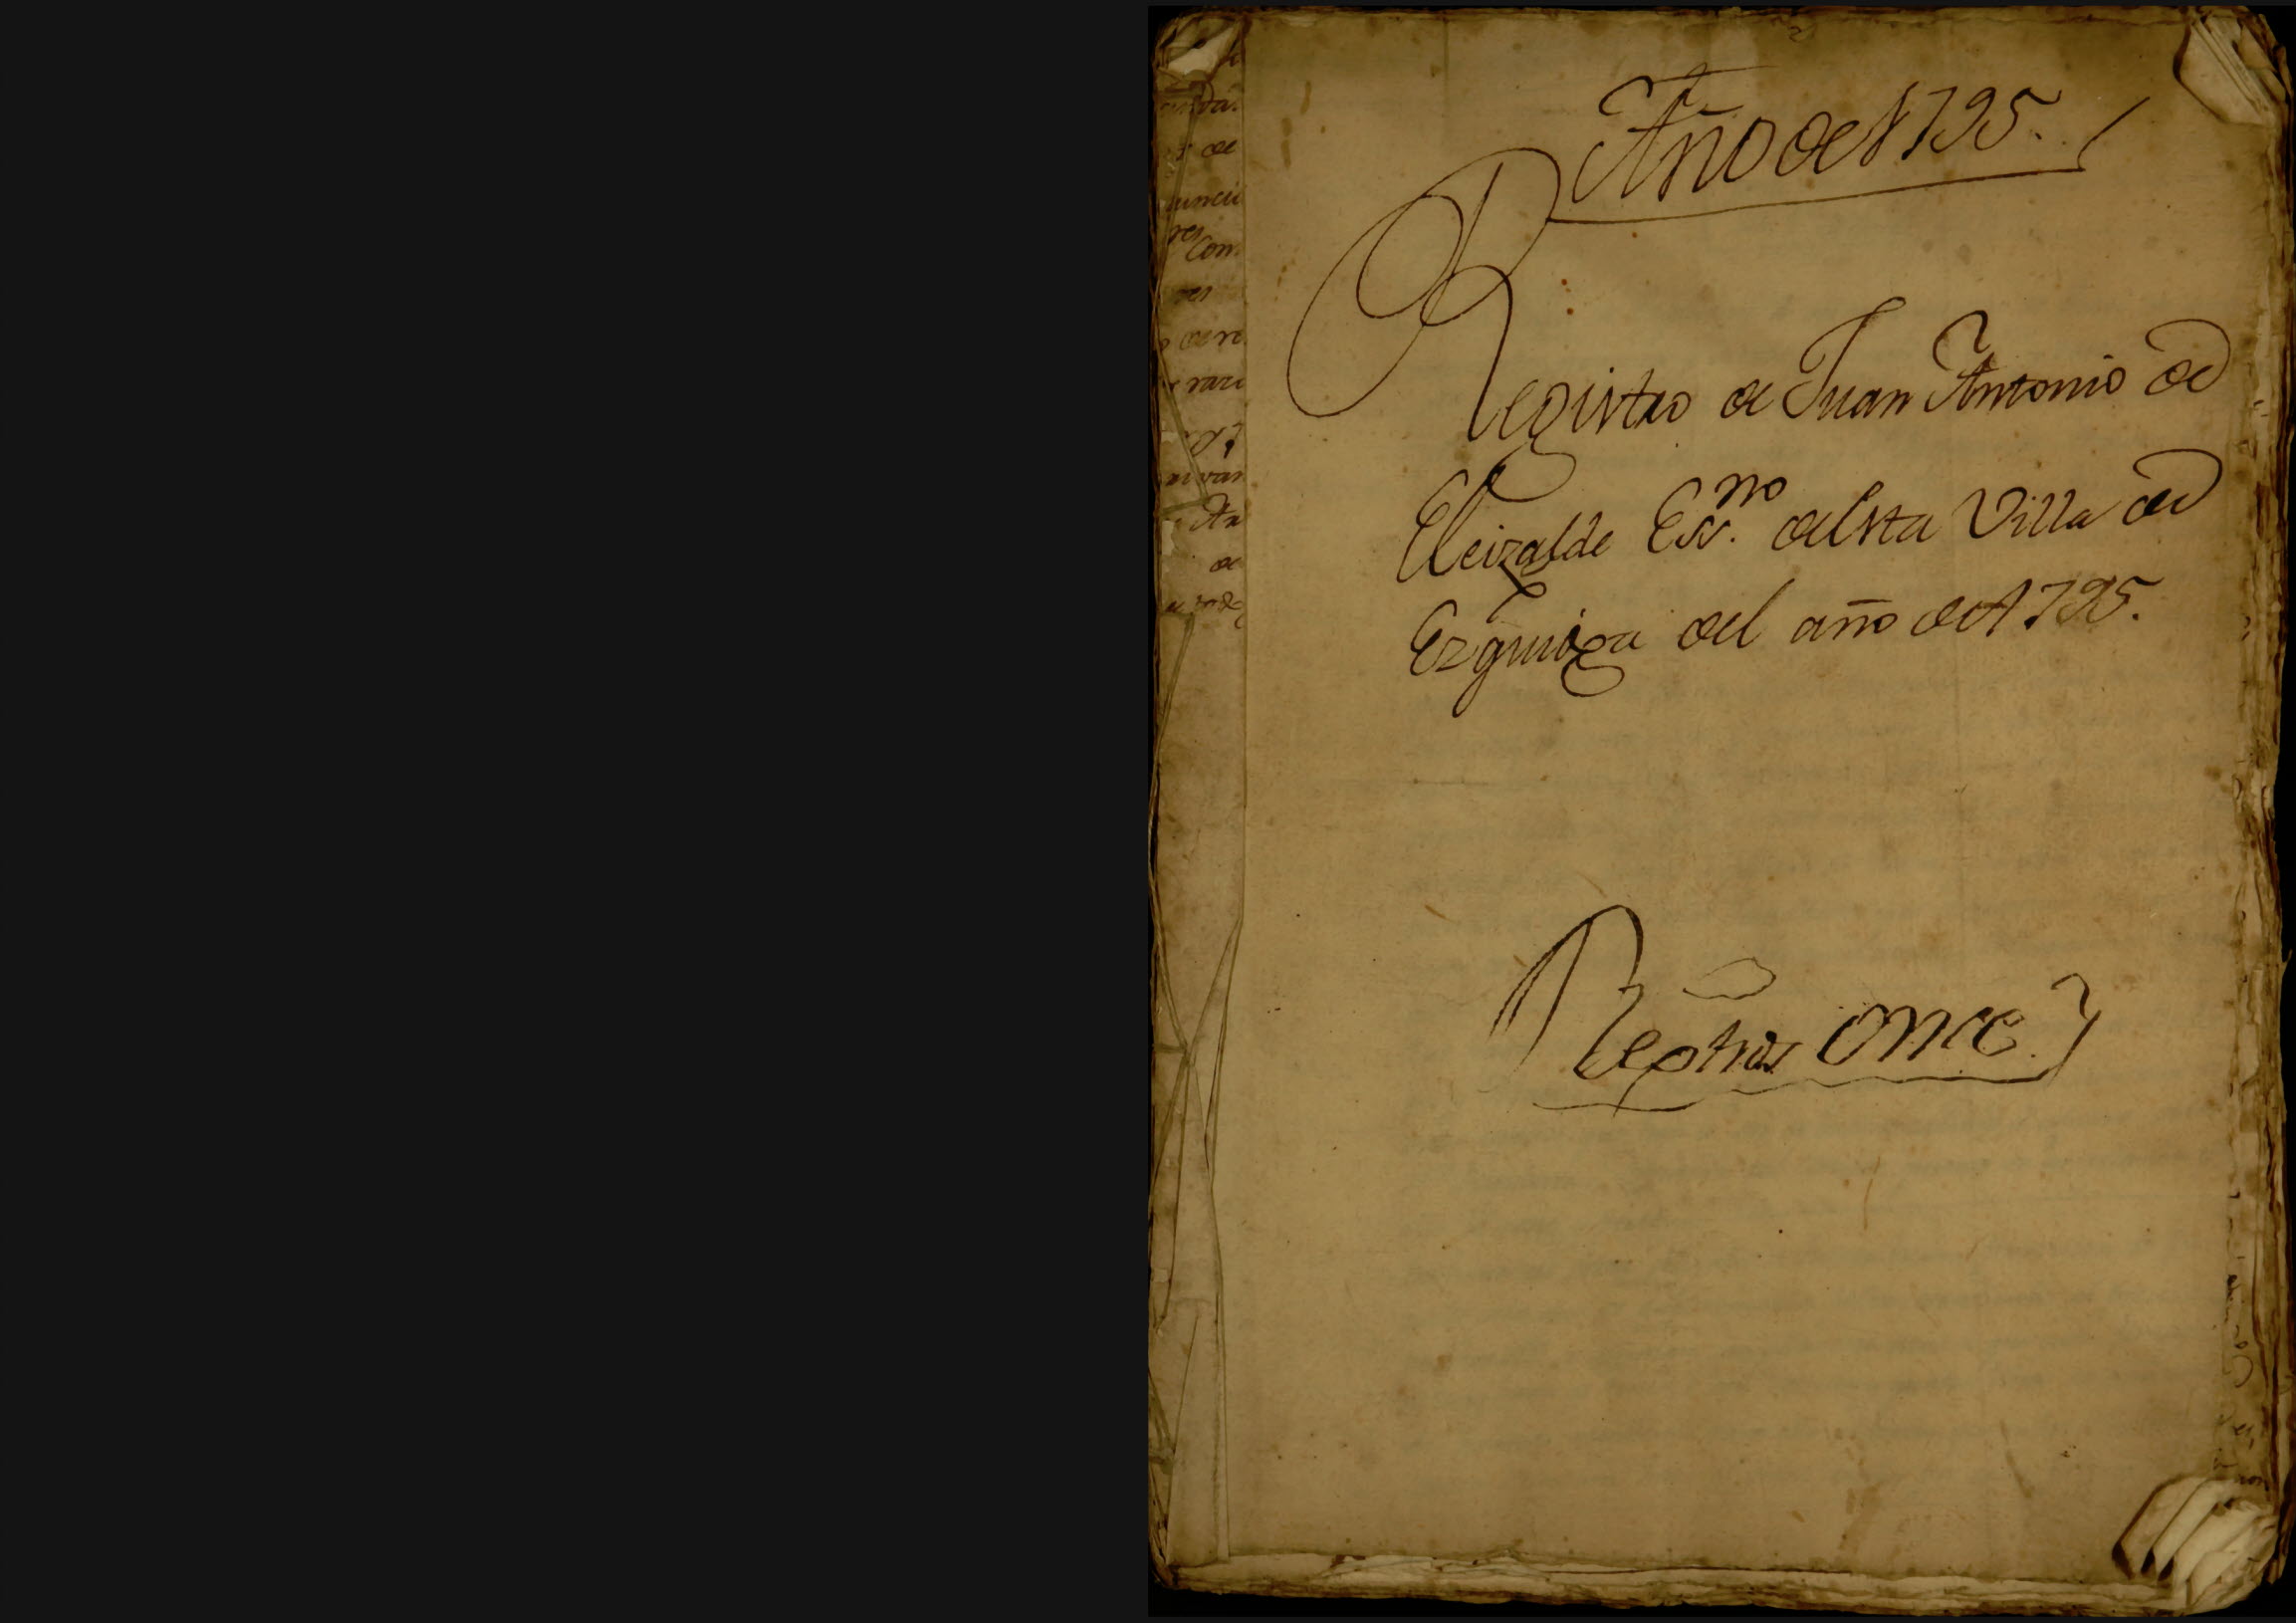 Año de 1795.
Registro de Juan Antonio de
Eleizalde Ess.no de esta Villa de
Ezquioga del año de 1795.
once